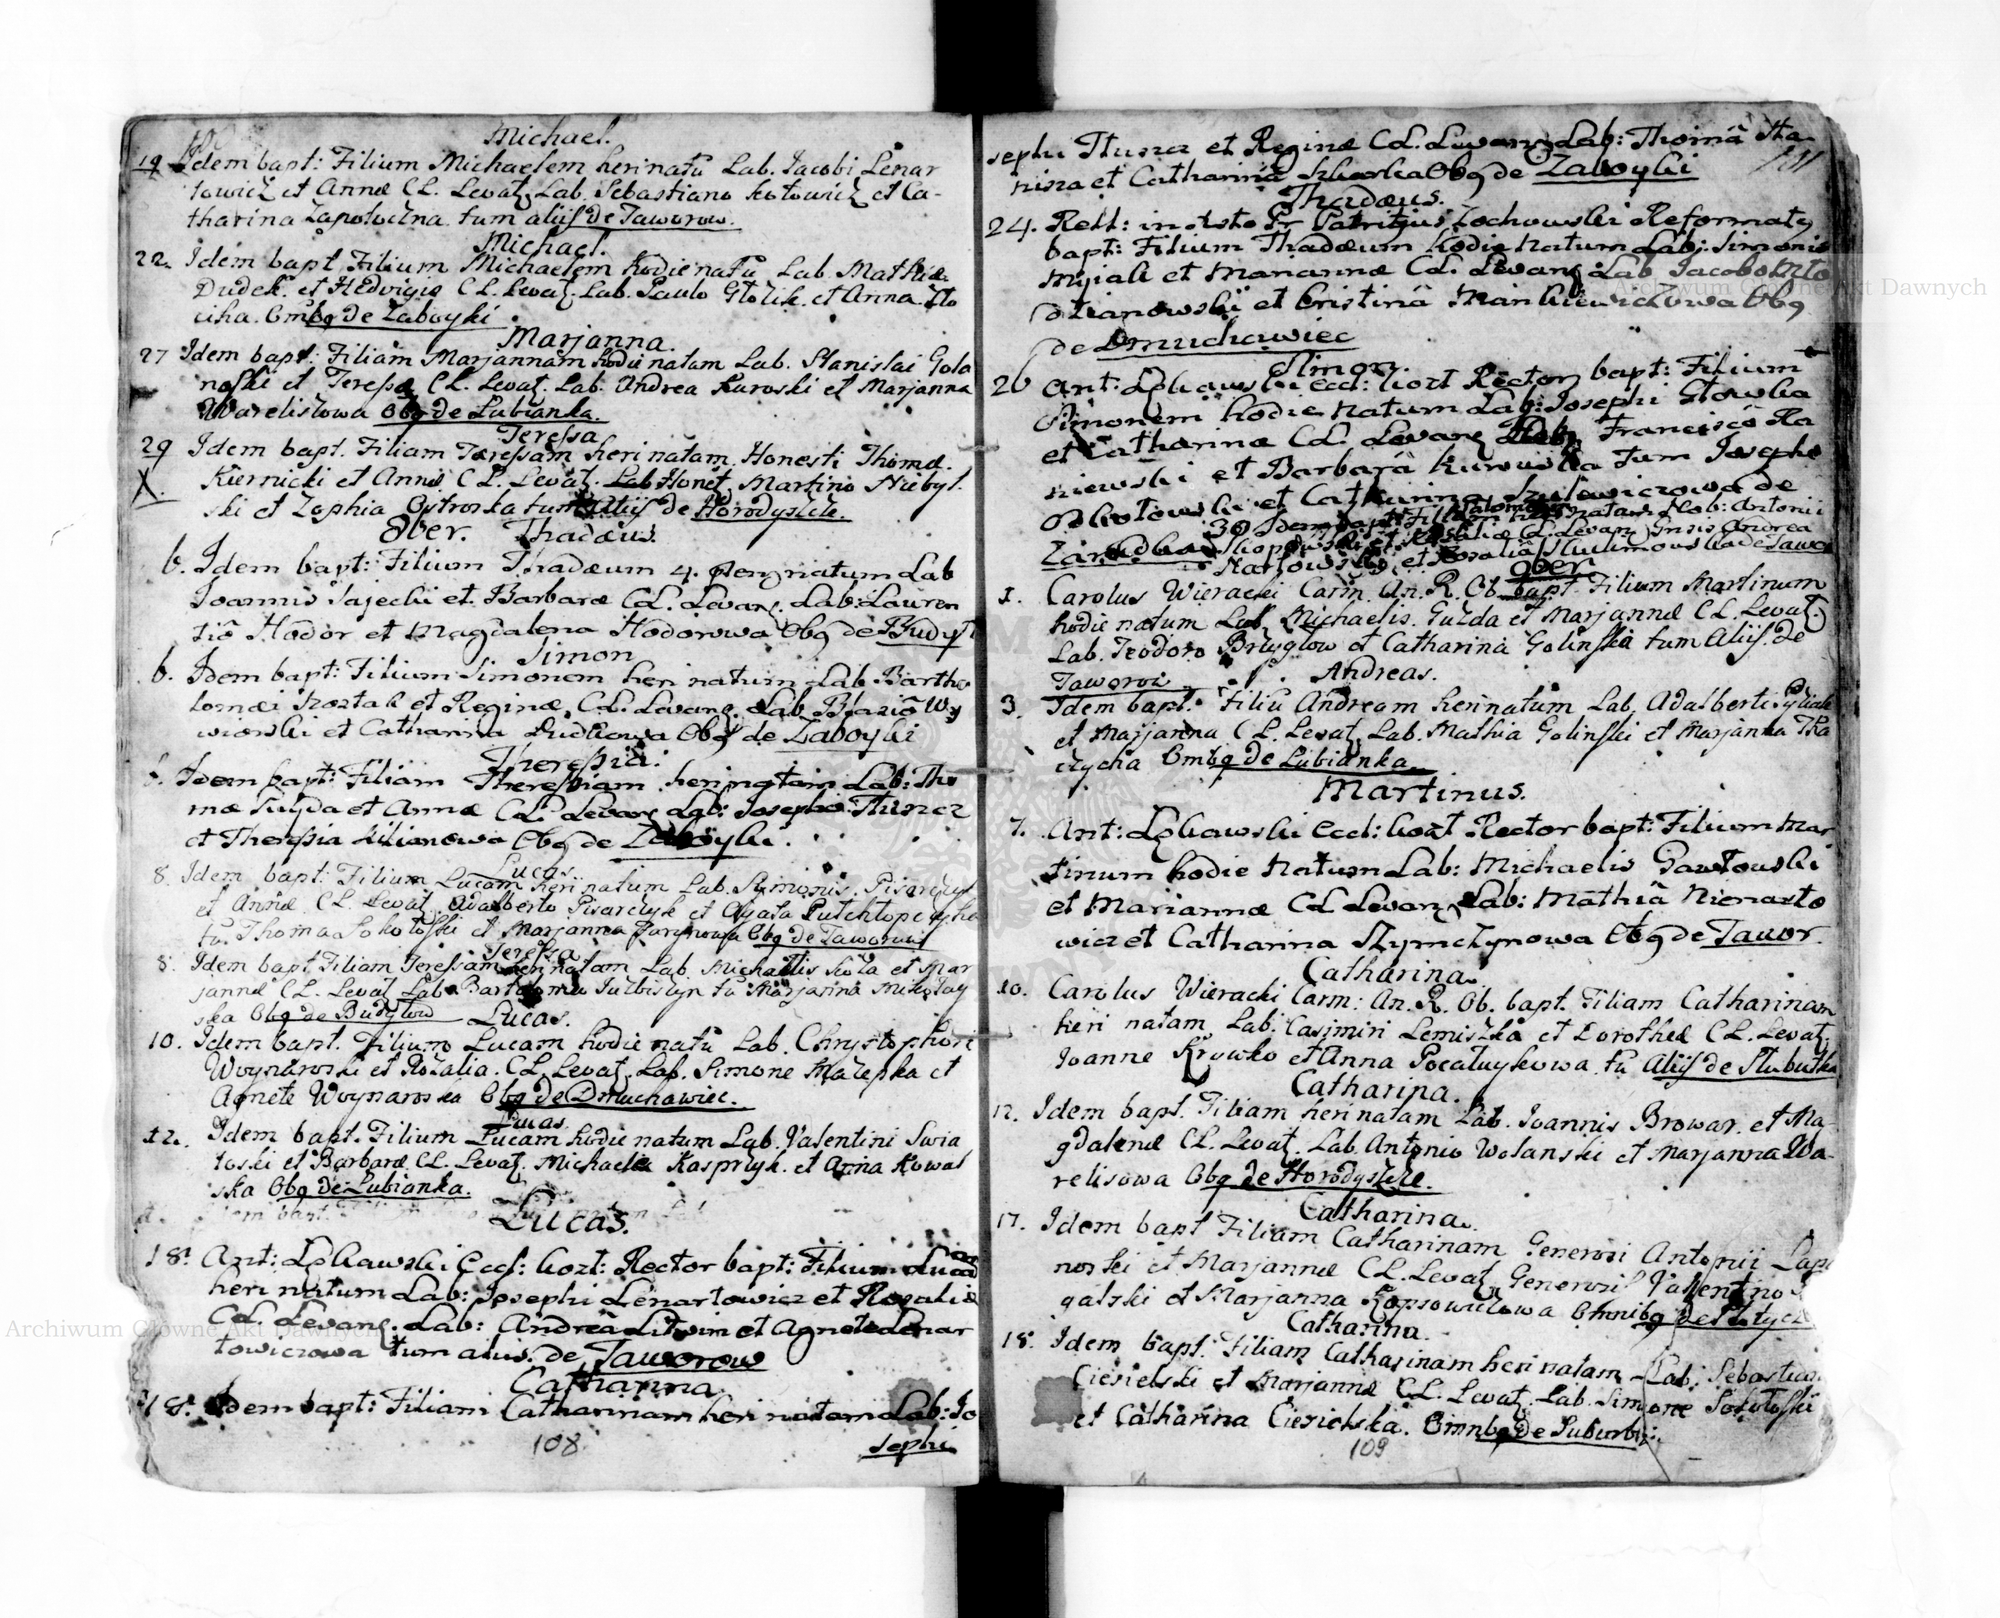 Michael.
19 Idem bapt: Filium Michaelem heri natũ Lab. Jacobi Lenar
towicz et Annæ CL. Levat. Lab. Sebastiano Kotowicz et Ca-
tharina Zapotoczna tum aliis de Jaworow.
Michael.
22. Idem bapt Filium Michaelem hodie natũ Lab. Mathiæ
Dudek et Hedvigis CL. Levat. Lab. Paulo Stolik et Anna
Omibq de Zaboyki
Marjanna.
27 Idem bapt: Filiam Marjannam hodie natam Lab. Stanislai Gola
noski et Teressæ CL. Levat. Lab. Andrea Kuroski et Marjanna
Wareliszowa Obq de Lubianka.
Teressa
29 Idem bapt. Filiam Teressam heri natam Honesti Thomæ
X. Kiernicki et Annæ CL. Levat. Lab Honęt Martino Niebyl.
ski et Zophia Ostroska tum Aliis de Horodyszcze.
8ber. Thadæus.
6. Idem bapt: Filium Thadæum natum Lab
Joannis Sajecki et Barbaræ CL. Levarq. Lab: Lauren
tiô Hodor et Magdalena Hodorowa Obq de Budył
Simon
6. Idem bapt: Filium Simonem heri natum Lab Bartho
lomæi Szostak et Reginæ CL. Levarq. Lab Blasiô Wy
wiorski et Catharina Dudkowa Obq de Zaboyki
Theressia.
Idem bapt: Filiam Theressiam heri natam Lab: Tho
mæ Suyda et Annæ CL. Levarq Lab: Josepho Tlusz
et Theressia Kilianowa Obq de Zaboyki.
Lucas
8. Idem bapt: Filium Lucam heri natum Lab. Symonis Pisarczyk
et Annæ CL. Levat. Adalberto Pisarczyk et Agata
tũ. Thoma Sokołoski et Marjanna Obq de Taworow
Teressa
8. Idem bapt Filiam Teressam heri natam Lab. Michaelis et Mar
jannæ CL. Levat. Lab. Bartolomeo tũ Marjanna Mikołay
ska Obq de Budyłow Lucas.
10. Idem bapt. Filium Lucam hodie natũ Lab. Chrystophori
Woynaroski et Rozalia. CL. Levat. Lab. Simone Mazepka et
Agnete Woynaroska Obq de Dmuchawiec.
Lucas.
12. Idem bapt. Filium Lucam hodie natum Lab. Valentini Swia
toski et Barbaræ CL. Levat. Michaele Kasprzyk et Anna Kowal
ska Obq de Lubianka.
Lucas.
18. Ant: Lękawski Eccl: kozt: Rector bapt: Filium Lucam
heri natum Lab: Josephi Lenartowicz et Rosaliæ
CL. Levarq. Lab: Andreâ Litwin et Agnete Lenar
towiczowa tum alius. de Jaworow
Catharina.
18. Idem bapt: Filiam Catharinam heri natam Lab: Jo
108
sephi
sephi Tlusz et Reginæ CL. Levarq Lab: Thomâ Sta
nisz et Catharinâ Szkarska Obq de Zaboyki
Thadæus.
24. Patritius Zochowski Reformatq
bapt: Filium Thadæum hodie natum Lab: Simonis
Myiak et Mariannæ CL. Levarq Lab Jacobo
et Cristinâ Mankiewiczowa Obq
de Dmuchawiec
Simon.
26 Ant: Lękawski Eccl: kozt Rector bapt: Filium
Simonem hodie natum Lab: Josephi Głowka
et Catharinæ CL. Levarq Franciscô Ra
niewski et Barbarâ Kurowska tum Josepho
et Catharina de
30 Idem bapt: Filiam natam Nob: Antonii
et CL. Levarq Andrea
et Rosaliâ
9ber
1. Carolus Wieracki Carm. An. R. Ob. bapt. Filium Martinum
hodie natum Lab. Michaelis. Guzda et Marjannæ CL. Levat.
Lab. Teodoro Bryglow et Catharina Golinska tum Aliis. de
Taworow Andreas.
3. Idem bapt. Filiũ Andream heri natum Lab. Adalberti
et Marjanna CL. Levat. Lab. Mathia Golinski et Marjanna Tka
czycha Omibq de Lubianka.
Martinus.
7. Ant: Lękawski Eccl: kozt Rector bapt: Filium Mar
tinum hodie natum Lab: Michaelis Gawłowski
et Mariannæ CL Levarq Lab: Mathiâ Nienarto
wicz et Catharina Szymczynowa Obq de Jawor.
Catharina.
10. Carolus Wieracki Carm: An. R. Ob. bapt. Filiam Catharinam
heri natam Lab. Casimiri Lemiszka et Dorotheæ CL. Levat.
Joanne Krowko et Anna Pocałuykowa tũ Aliis de Płebutka
Catharina.
12. Idem bapt. Filiam heri natam Lab. Joannis Browar et Ma-
gdalenæ CL. Levat. Lab. Antonio Wolanski et Marjanna Wa-
relisowa Obq de Horodyszcze.
Catharina.
17. Idem bapt Filiam Catharinam Generosi Antonii
noski et Marjannæ CL. Levat Generosi Valentino
galski et Marjanna Kopsowiczowa Omnibq de
Catharina.
18. Idem bapt. Filiam Catharinam heri natam Lab: Sebastiani
Ciesielski et Marjannæ CL. Levat. Lab. Simone Sokołoski
et Catharina Ciesielska. Omnbq de Suburbijs.
109
Archiwum Główne Akt Dawnych
Archiwum Główne Akt Dawnych